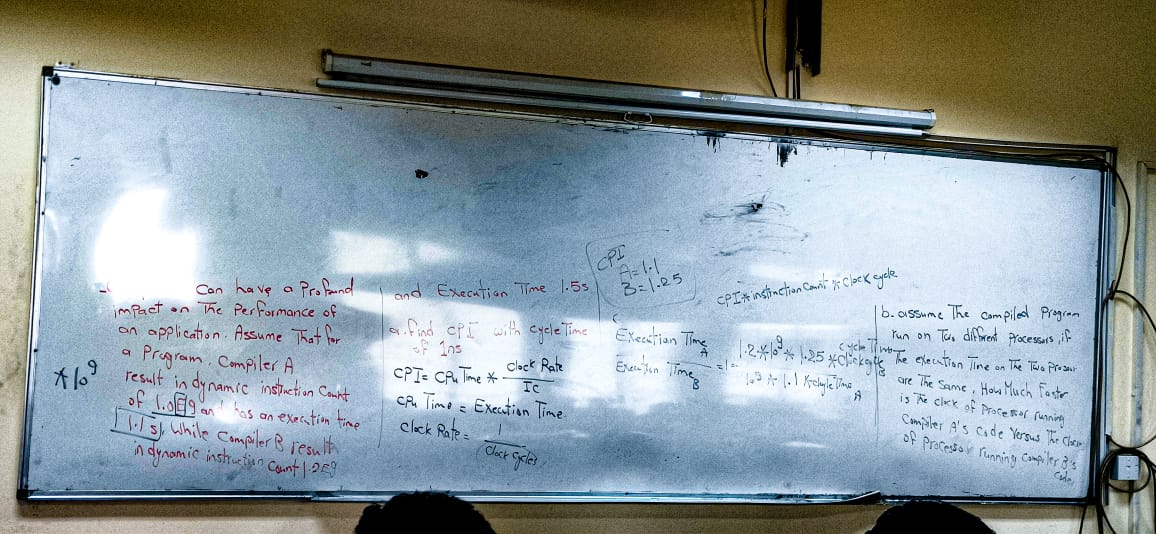 Can have a Profound
impact on The Performance of
an application. Assume That for
a Program, Compiler A
result in dynamic instruction Count
of 1.0E9 and has an execution time
1.1s, while Compiler B result
in dynamic instruction Count 1.2E9
*10^9
and Execution Time 1.5s
a. find CPI with cycle Time
of 1ns
CPI = CPU Time * clock Rate / Ic
CPU Time = Execution Time
clock Rate = 1 / Clock Cycles
CPI
A=1.1
B=1.25
CPI * instruction Count * Clock cycle
Execution Time A / Execution Time B = 1 =
1.2*10^9 * 1.25 * cycle Time B
10^9 * 1.1 * cycle Time A
b. assume The compiled Program
run on Two different Processors, if
The execution Time on The Two
are The same, How Much Faster
is The clock of Processor running
Compiler A's code Versus The
of Processor running Compiler B's
code,